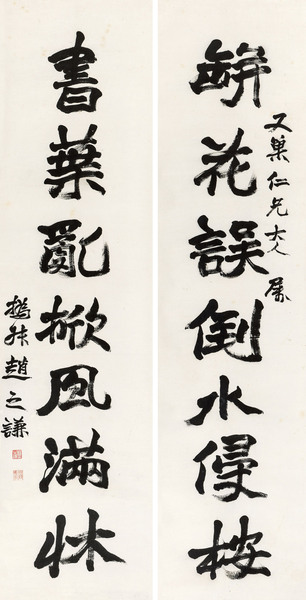 缾花誤倒水侵桉
又巢仁兄大人屬
書葉亂掀風滿牀
撝叔趙之謙